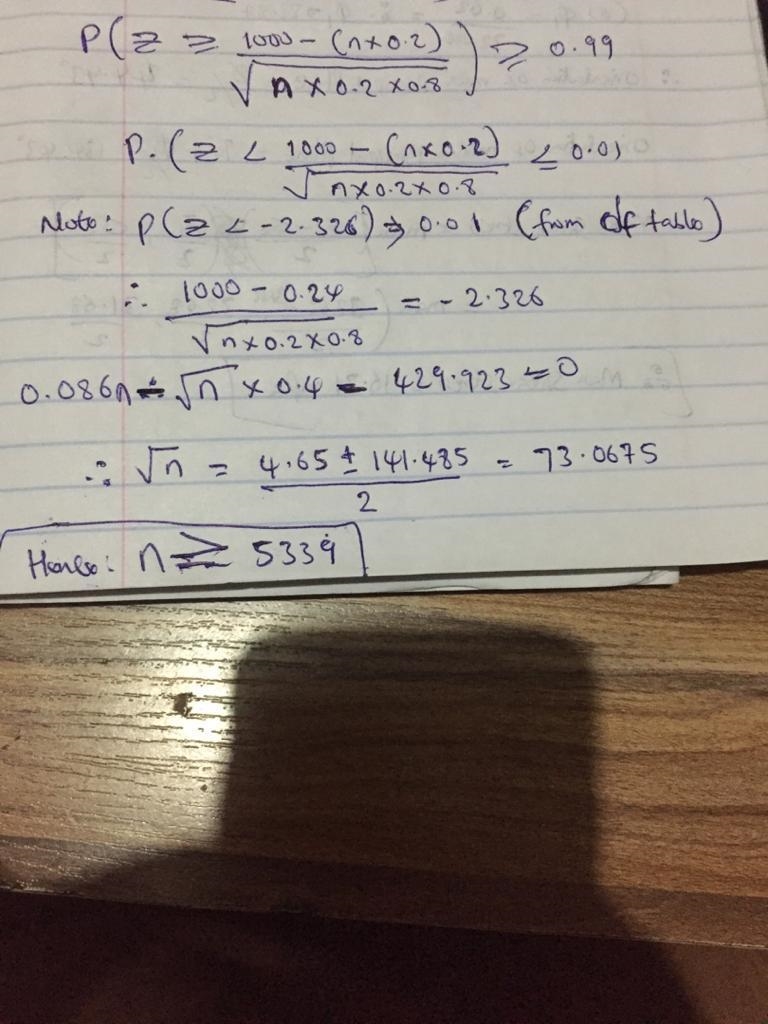 P(Z ≥ (1000 - (n×0.2))/√(n×0.2×0.8)) ≥ 0.99
P.(Z < (1000 - (n×0.2))/√(n×0.2×0.8) ≤ 0.01
Note: P(Z < -2.326) ⇒ 0.01 (from df table)
∴ (1000 - 0.24)/√(n×0.2×0.8) = -2.326
0.086n - √n × 0.4 - 429.923 = 0
∴ √n = (4.65 ± 141.485)/2 = 73.0675
Hence: n ≥ 5339